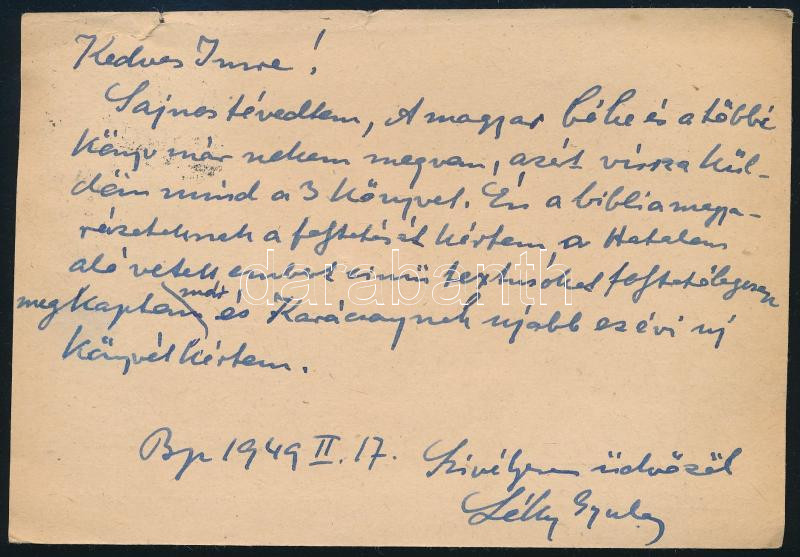 Kedves Imre!
Sajnos tévedtem, A magyar béke és a többi
könyv már nekem megvan, azért vissza kül-
döm mind a 3 könyvet. Én a biblia magya-
rázateknek a folytatását kértem, a Hatalom
alá vetett embert című
már
megkaptam és Karácsonynak ujabb ez évi uj
könyvét kértem.
Bp 1949 II. 17. Szivélyesen üdvözöl
Gyula
darabanth